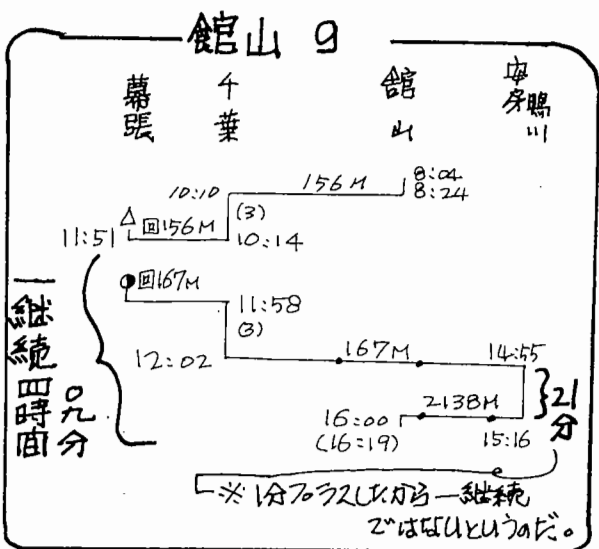 館山 9
幕張
千葉
館山
安房鴨川
8:04
156M
8:24
10:10
(3)
△
回156M
11:51
10:14
回167M
11:58
(3)
12:02
167M
14:55
21分
2138M
16:00
(16:19)
15:16
一継続四時間〇九分
※1分プラスしたから一継続
ではないというのだ。